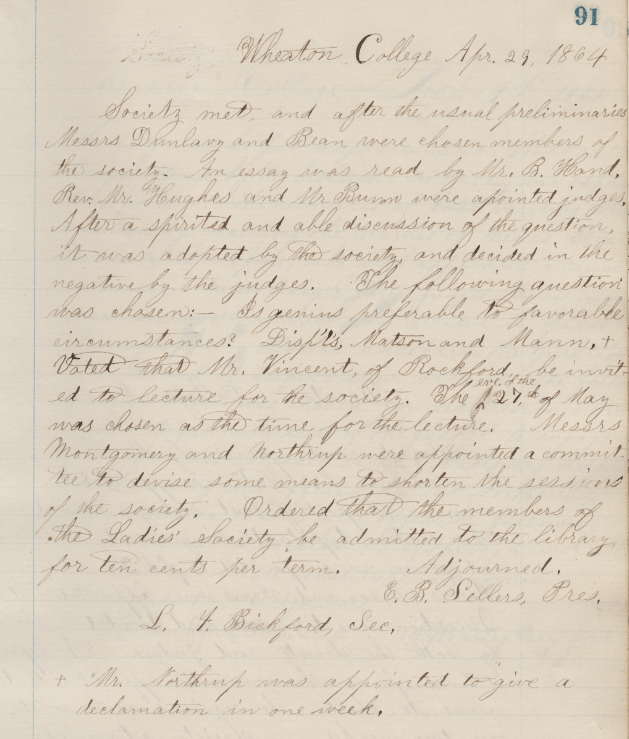 91
Wheaton College Apr. 29, 1864
Society met, and after the usual preliminaries
Messrs Dunlavy and Bean were chosen members of
the society. An essay was read by Mr. B. Hand.
Rev. Mr. Hughes and Mr Bunn were apointed judges.
After a spirited and able discussion of the question,
it was adopted by the society, and decided in the
negative by the judges. The following question
was chosen:— Is genius preferable to favorable
circumstances? Disp'ts, Matson and Mann, +
Voted that Mr. Vincent, of Rockford, be invit-
eve. of the
ed to lecture for he society. The 27th of May
was chosen as the time for the lecture. Messrs
Montgomery and Northrup were appointed a commit-
tee to devise some means to shorten the sessions
of the society. Ordered that the members of
the Ladies' Society be admitted to the library
for ten cents per term. Adjourned.
E. B. Sellers, Pres.
L. F. Bickford, Sec.
+ Mr. Northrup was appointed to give a
declamation in one week.